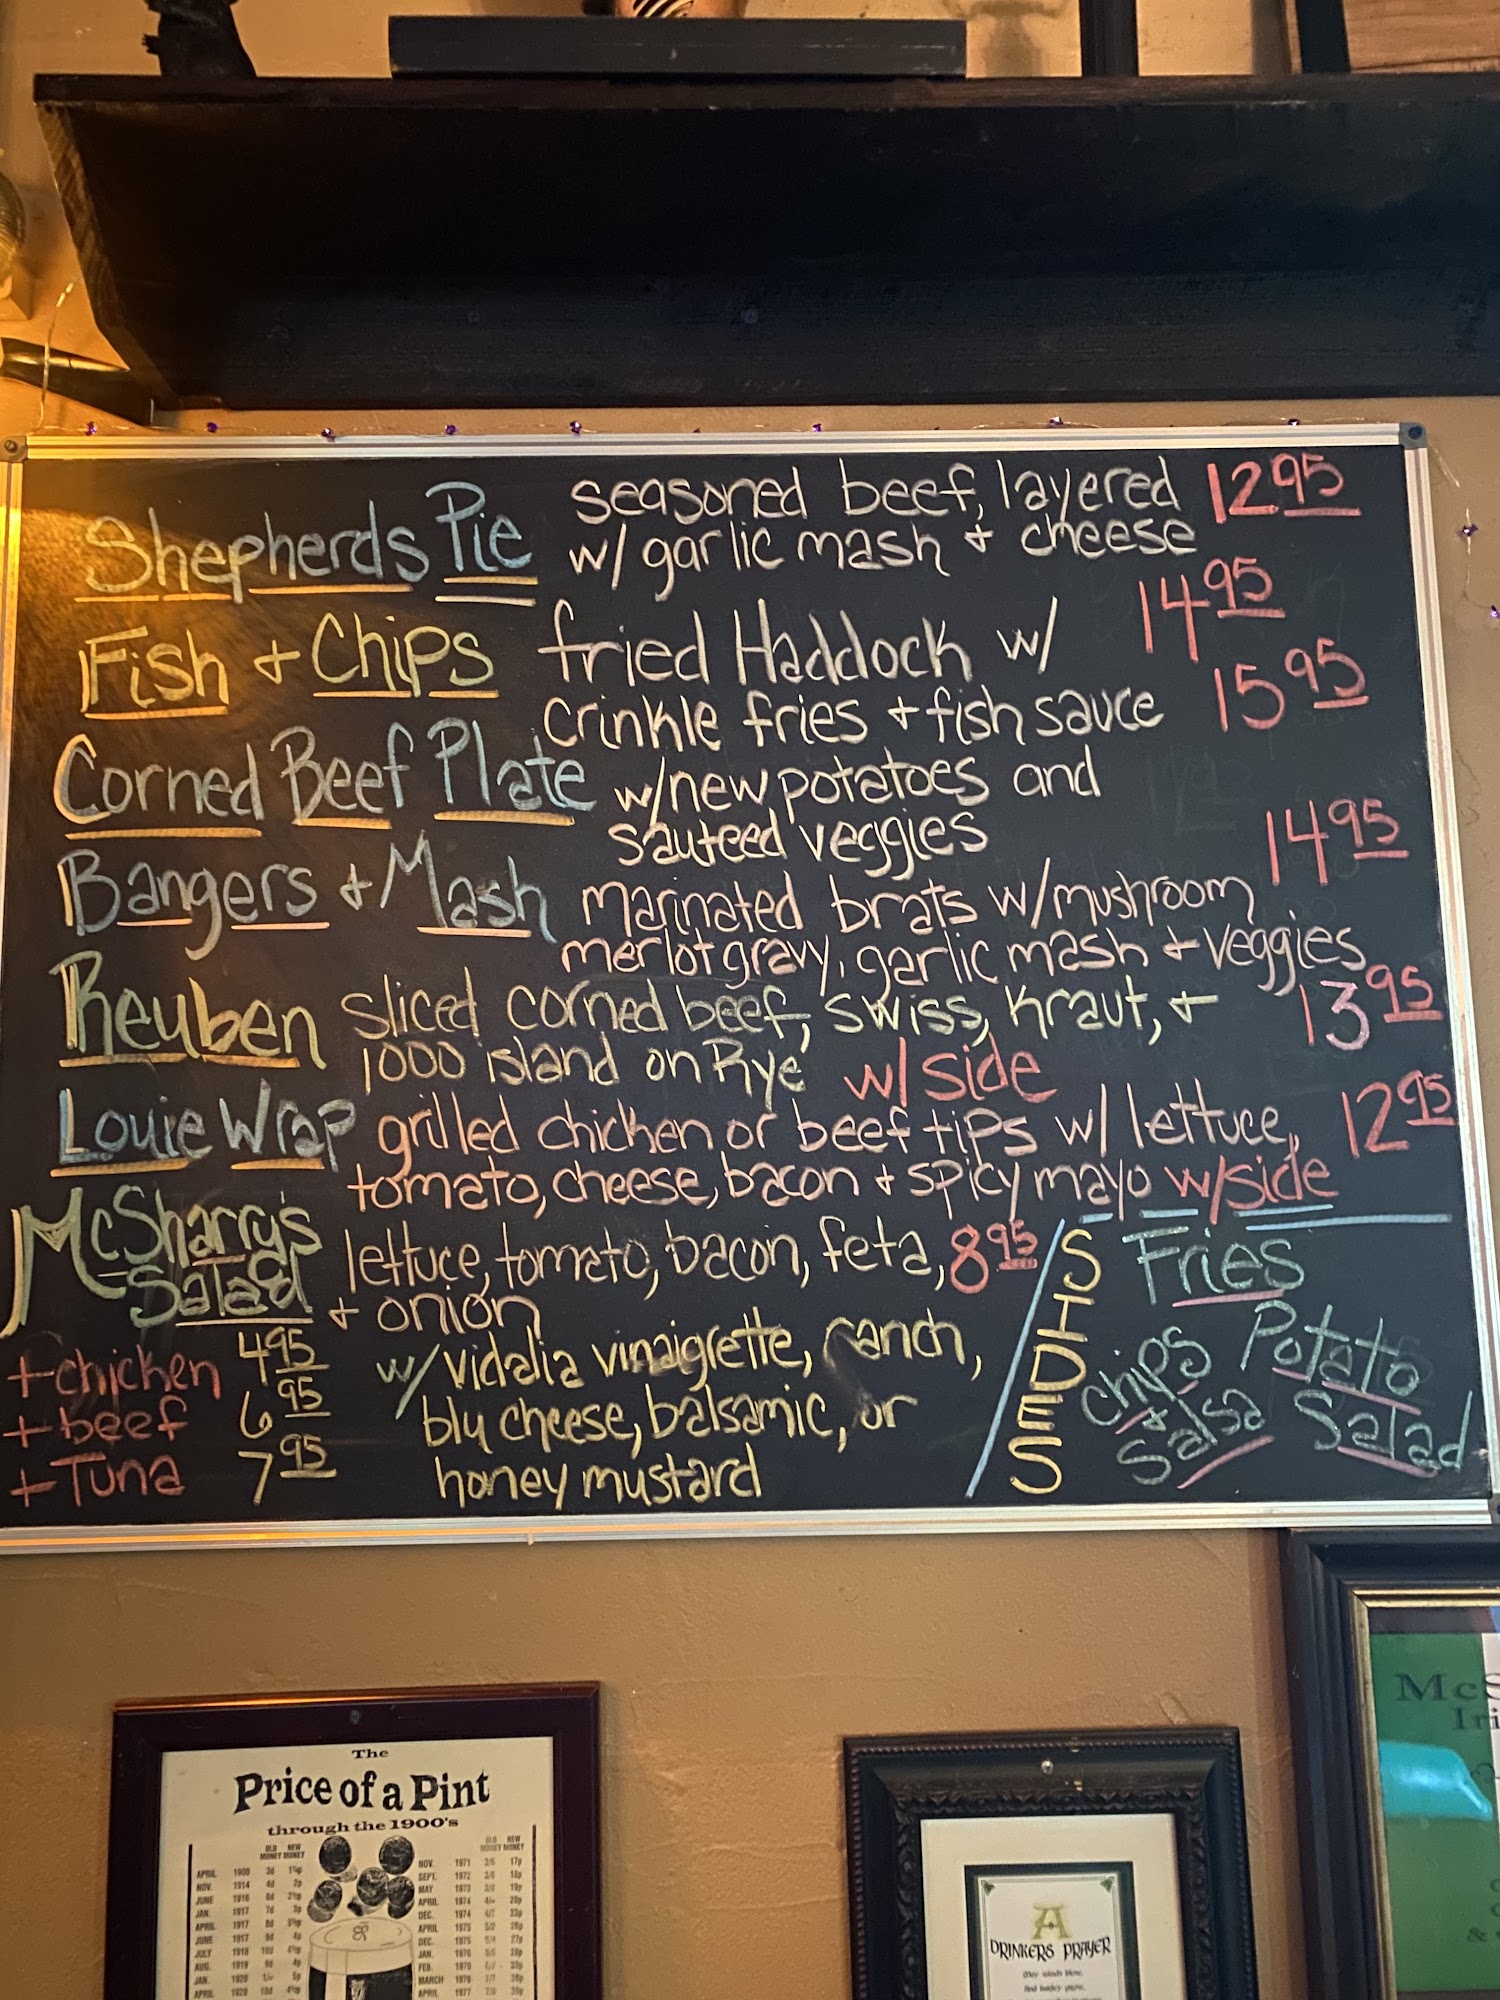 Shepherds Pie seasoned beef, layered 12 95
w/ garlic mash + cheese
Fish + Chips fried Haddock w/ 14 95
crinkle fries + fish sauce
Corned Beef Plate w/ new potatoes and 15 95
sauteed veggies
Bangers + Mash marinated brats w/ mushroom 14 95
merlot gravy, garlic mash + veggies
Reuben sliced corned beef, swiss, kraut, + 13 95
1000 island on Rye w/ side
Louie Wrap grilled chicken or beef tips w/ lettuce, 12 95
tomato, cheese, bacon + spicy mayo w/ side
McSharry's Salad lettuce, tomato, bacon, feta, 8 95
+ onion
+ chicken 4 95
+ beef 6 95
+ Tuna 7 95
w/ vidalia vinaigrette, ranch,
blu cheese, balsamic, or
honey mustard
SIDES
Fries
Chips + Salsa
Potato Salad
The
Price of a Pint
through the 1900's
OLD MONEY NEW MONEY
OLD MONEY NEW MONEY
APRIL 1900 3d
NOV. 1914 4d 2p
JUNE 1916 6d
JAN. 1917 7d 3p
APRIL 1917 8d
JUNE 1917 9d 4p
JULY 1918 10d
AUG. 1919
JAN. 1920 5p
APRIL 1920
NOV. 1971 17p
SEPT. 1972 18p
MAY 1973
APRIL 1974
DEC. 1974
APRIL 1975
DEC. 1975
JAN. 1976
FEB. 1976
MARCH 1976
APRIL 1977
A
DRINKERS PRAYER
McS
Iri
&